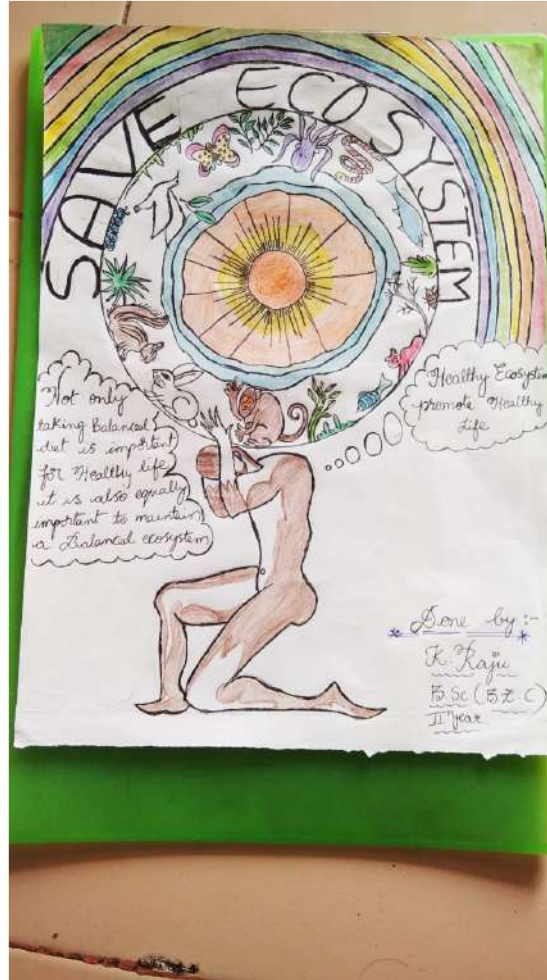 SAVE ECOSYSTEM
Not only
taking Balanced
diet is important
for Healthy life
it is also equally
important to maintain
a Balanced ecosystem
Healthy Ecosystem
promote Healthy
Life
Done by :-
K. Raju
B. Sc (B.Z.C)
II year